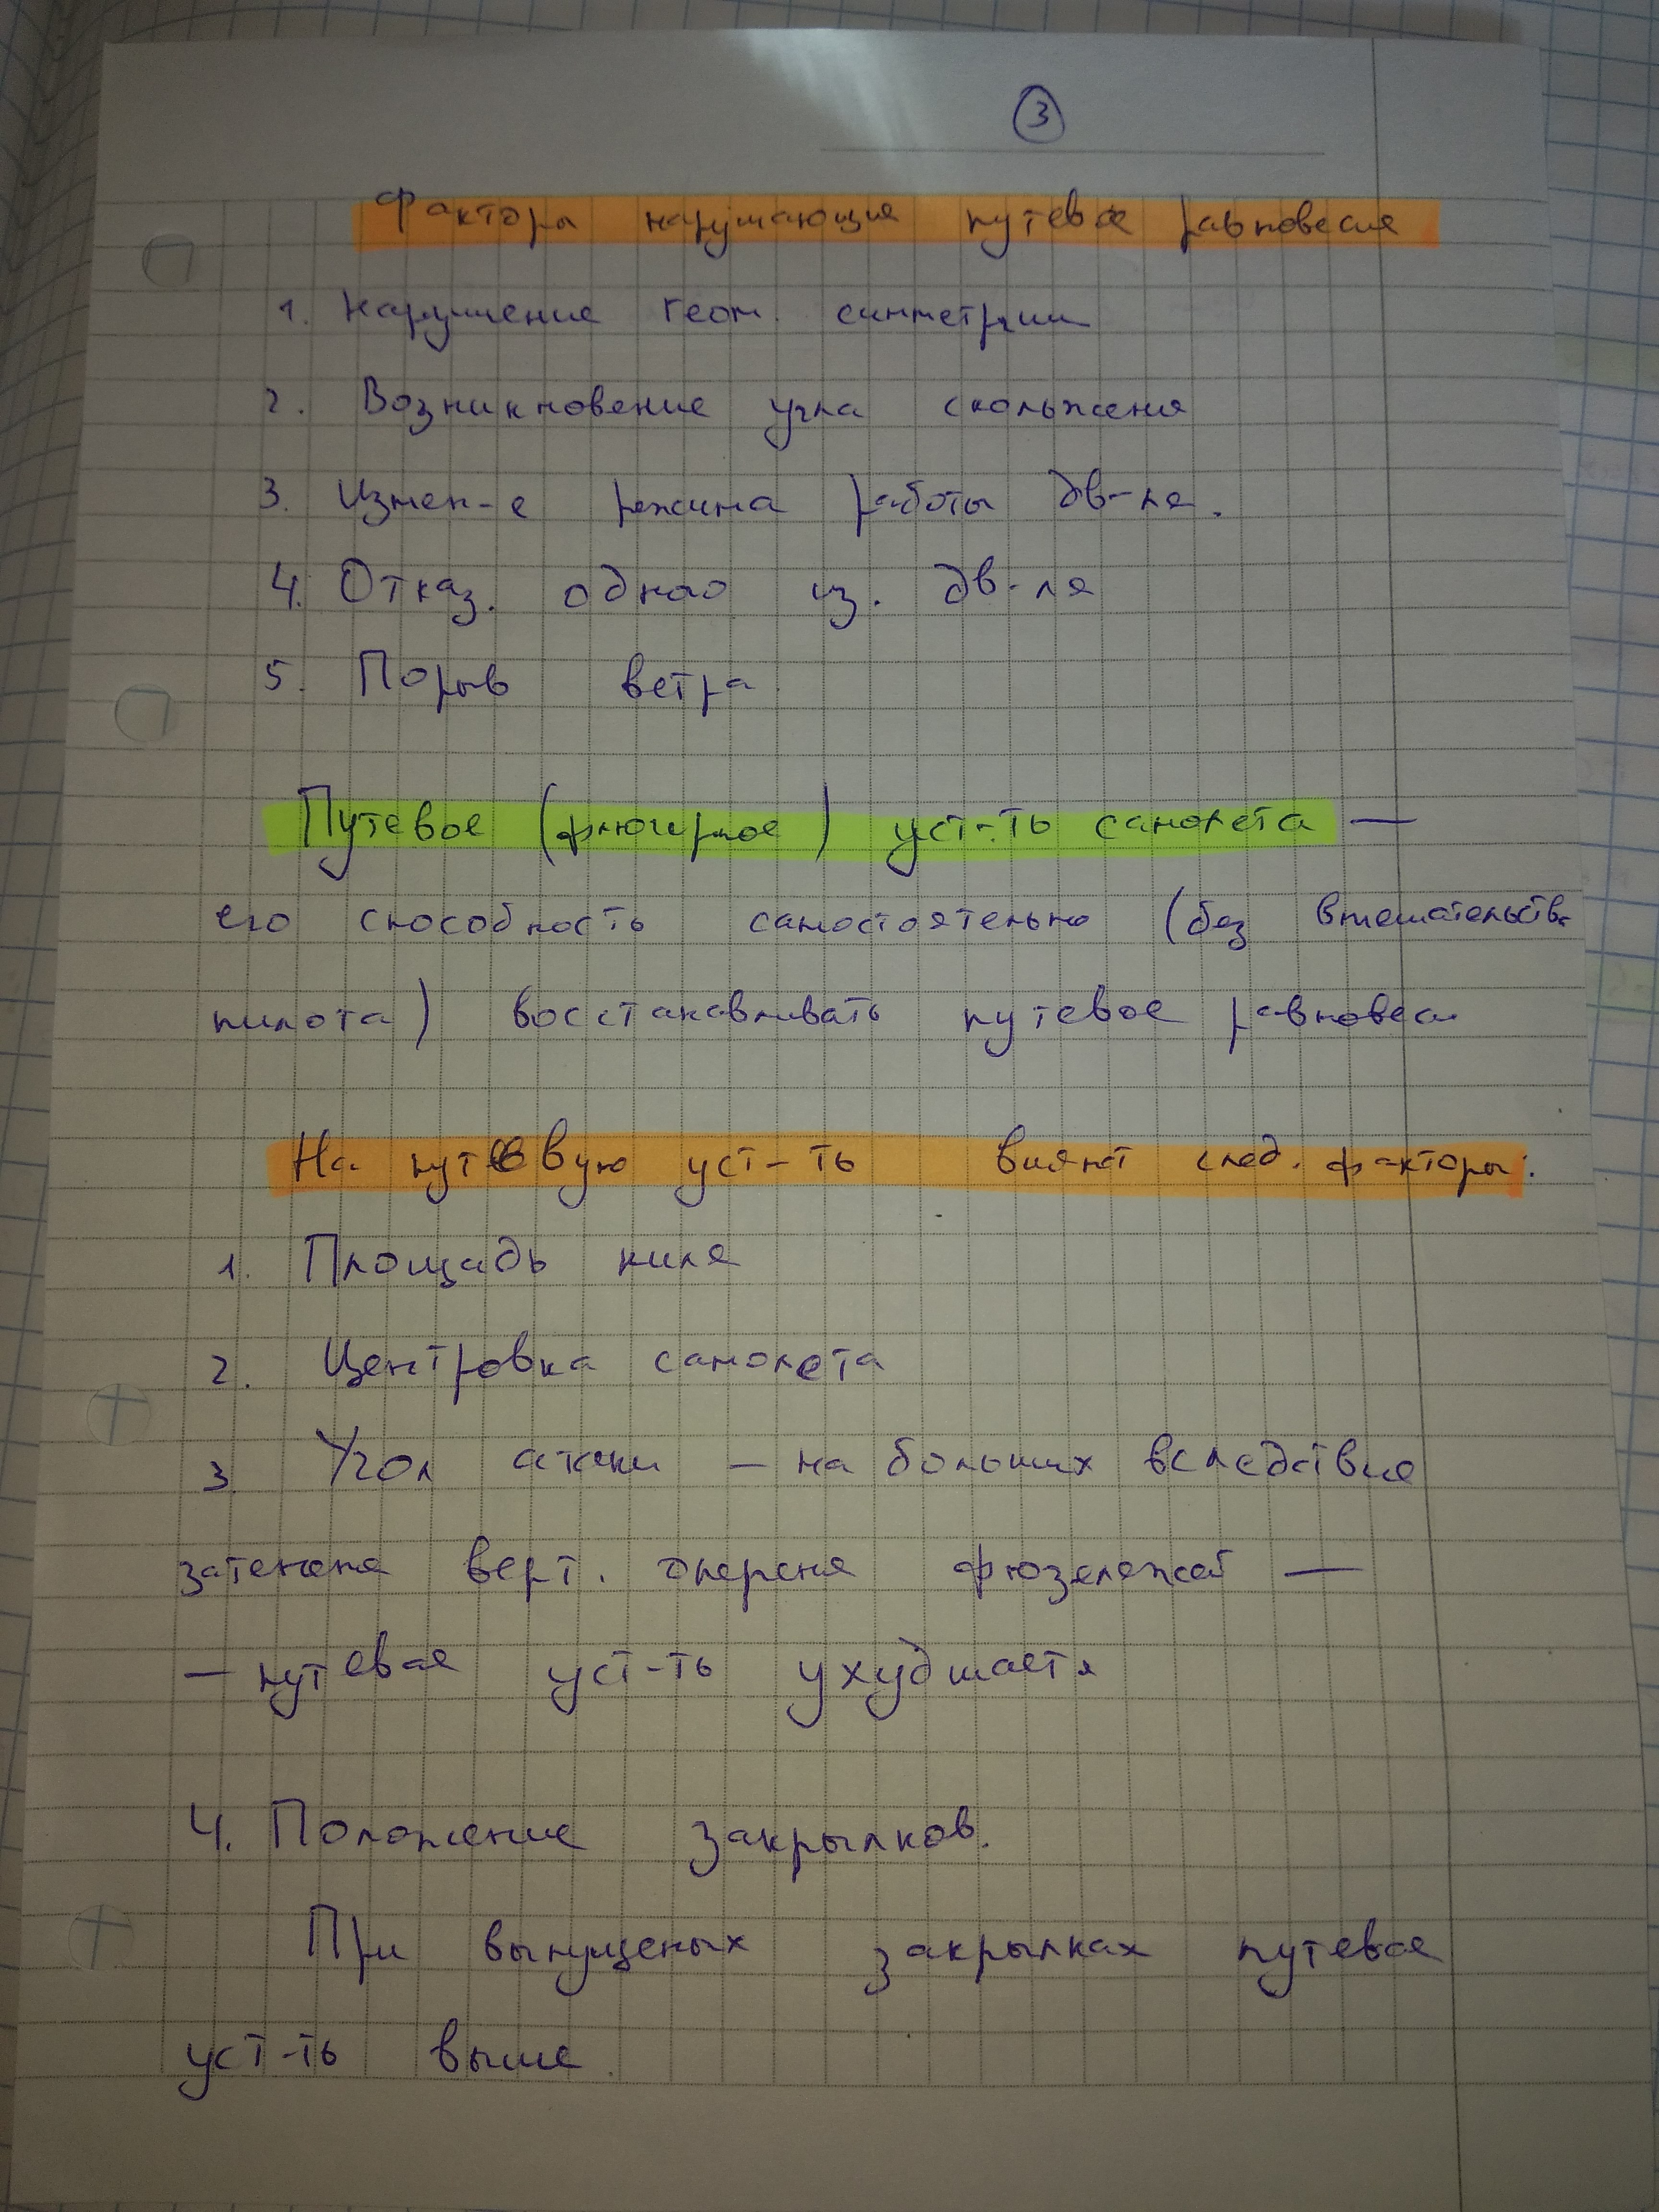 3
Факторы нарушающие путевое равновесия
1. Нарушение геом. симметрии
2. Возникновение угла скольжения
3. Измен-е режима работы дв-ля.
4. Отказ. одного из. дв-ля
5. Порыв ветра
Путевое (флюгерное) уст-ть самолета —
его способность самостоятельно (без вмешательства
пилота) восстанавливать путевое равновеси
На путевую уст-ть влияют след. факторы:
1. Площадь киля
2. Центровка самолета
3 Угол атаки – на больших вследствие
затенения верт. оперения фюзеляжей —
— путевая уст-ть ухудшается
4. Положение закрылков.
При выпущеных закрылках путевая
уст-ть выше.